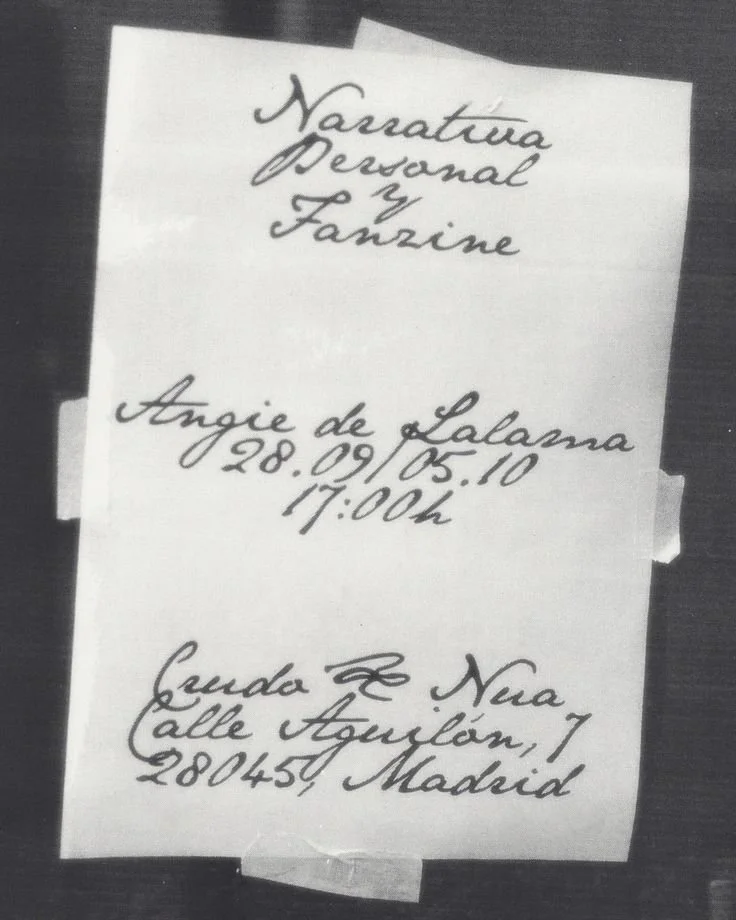 Narrativa
Personal
y
Fanzine
Angie de Lalama
28.09/05.10
17:00h
Crudo & Nua
Calle Aguilón, 7
28045, Madrid